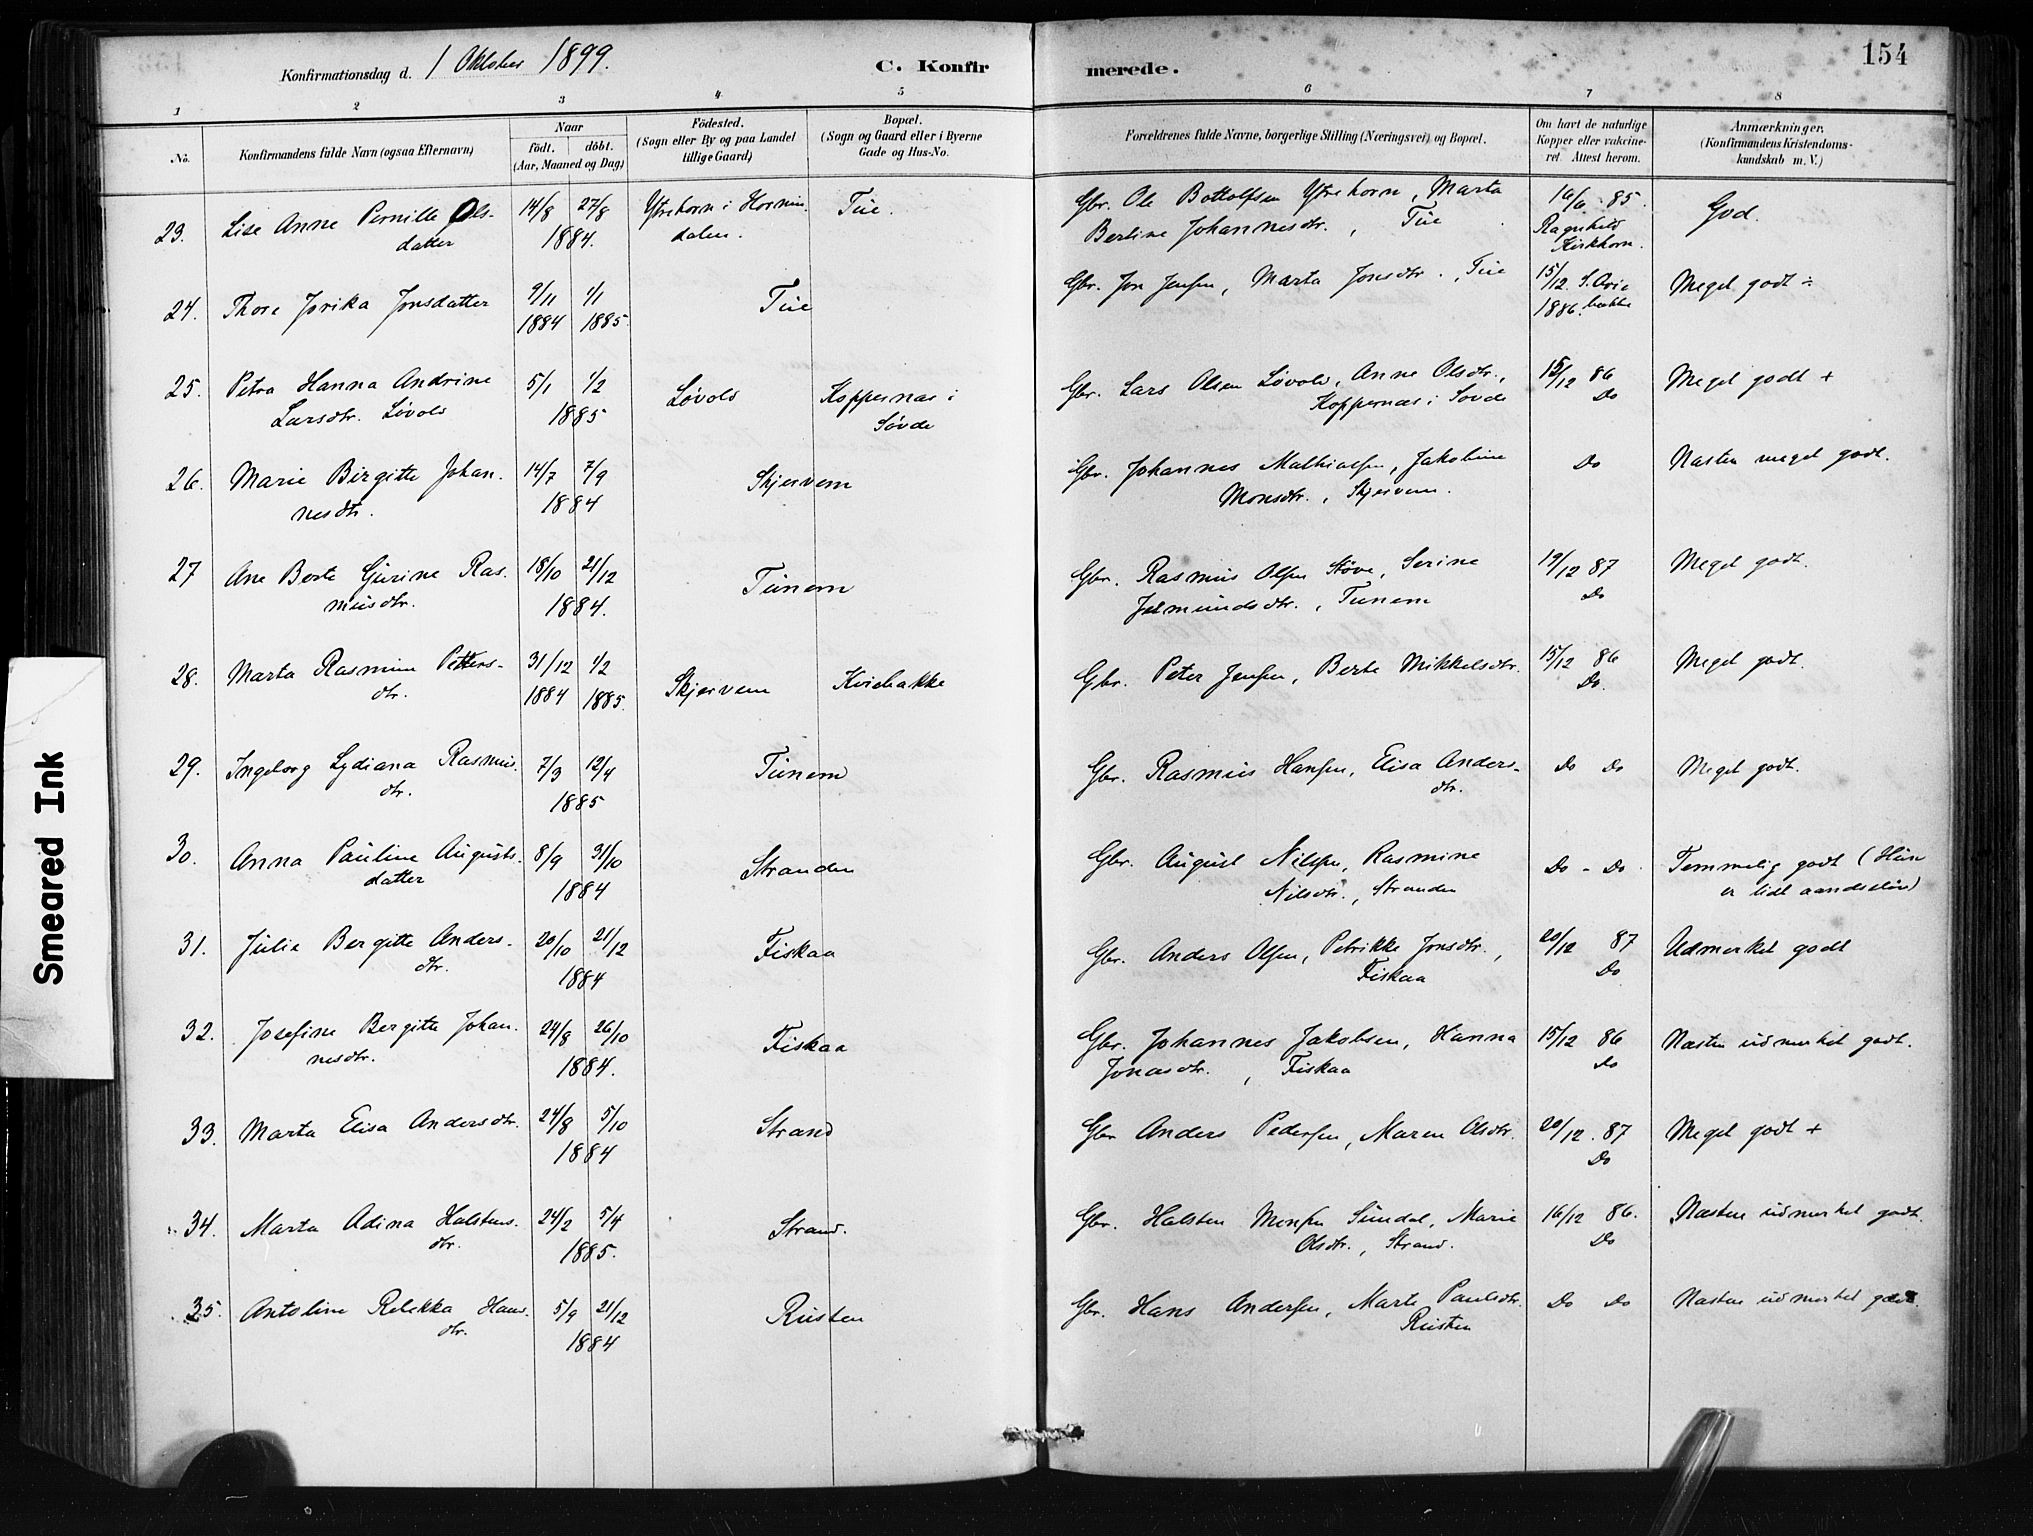 Konfirmationsdag d. 1 Oktober 1899.
C. Konfirmerede.
154
1 2 3 4 5 6 7 8
No.
Konfirmandens fulde Navn (ogsaa Efternavn)
Naar
födt. döbt.
(Aar, Maaned og Dag)
Födested.
(Sogn eller By og paa Landet
tillige Gaard)
Bopæl.
(Sogn og Gaard eller i Byerne
Gade og Hus-No.
Forældrenes fulde Navne, borgerlige Stilling (Næringsvei) og Bopæl.
Om havt de naturlige
Kopper eller vakcine-
ret. Attest herom.
Anmærkninger.
(Konfirmandens Kristendoms-
kundskab m. V.)
23. Lise Anne Pernille Ols- 14/8 27/8 Ytrehorn i Hornin- Tue. Gbr. Ole Bottolfsen Ytrehorn, Marta 16/6 - 85. God.
datter 1884. dalen. Berline Johannesdtr., Tue Ragnhild
Kirkhorn.
24. Thore Jorika Jonsdatter 9/11 1/1 Tue Gbr. Jon Jensen, Marta Jonsdtr., Tue 15/12 Meget godt ÷
1884 1885. 1886.
25. Petra Hanna Andrine 5/1 1/2 Løvold Koppernæs i Gbr. Lars Olsen Løvold, Anne Olsdtr., 15/12 86 Meget godt +
Larsdtr. Løvold 1885 Søvde Koppernæs i Søvde Do
26. Marie Birgitte Johan- 14/7 7/9 Skjervem Gbr. Johannes Mathiassen, Jakobine Do Næsten meget godt.
nesdtr. 1884 Monsdtr., Skjervem.
27 Ane Berte Gurine Ras- 18/10 21/12 Tunem Gbr. Rasmus Olsen Støve, Serine 19/12 87 Meget godt.
musdtr. 1884. Jetmundsdtr., Tunem Do
28. Marta Rasmine Petters- 31/12 1/2 Skjervem Kviebakke Gbr. Peter Jensen, Berte Mikkelsdtr. 15/12 86 Meget godt.
dtr. 1884 1885. Do.
29. Ingeborg Lydiana Rasmus- 7/3 12/4 Tunem Gbr. Rasmus Hansen, Elisa Anders- Do Do Meget godt.
dtr. 1885 dtr.
30. Anna Pauline Augusts- 8/9 31/10 Stranden Gbr. August Nilsen, Rasmine Do - Do. Temmelig godt (Hun
datter 1884 Nilsdtr., Stranden er lidt aandssløv)
31. Julie Bergitte Anders- 20/10 21/12 Fiskaa Gbr. Anders Olsen, Petrikke Jonsdtr., 20/12 87 Udmerket godt
dtr. 1884 Fiskaa Do
32. Josefine Bergitte Johan- 24/8 26/10 Fiskaa Gbr. Johannes Jakobsen, Hanna 15/12 86 Næsten udmerket godt.
nesdtr. 1884. Jonasdtr., Fiskaa Do
33. Marta Elisa Andersdtr. 24/8 5/10 Strand Gbr Anders Pedersen, Maren Olsdtr. 20/12. 87 Meget godt +
1884 Do
34. Marta Adina Halstens- 24/2 5/4 Strand. Gbr. Halsten Monsen Sundal, Marie 16/12 86. Næsten udmerket godt.
dtr. 1885. Olsdtr., Strand. Do
35. Antoline Rebekka Hans- 5/9 21/12 Rusten Gbr. Hans Andersen, Marte Paulsdtr. Do Do Næsten udmerket godt.
dtr. 1884 Rusten
Smeared Ink